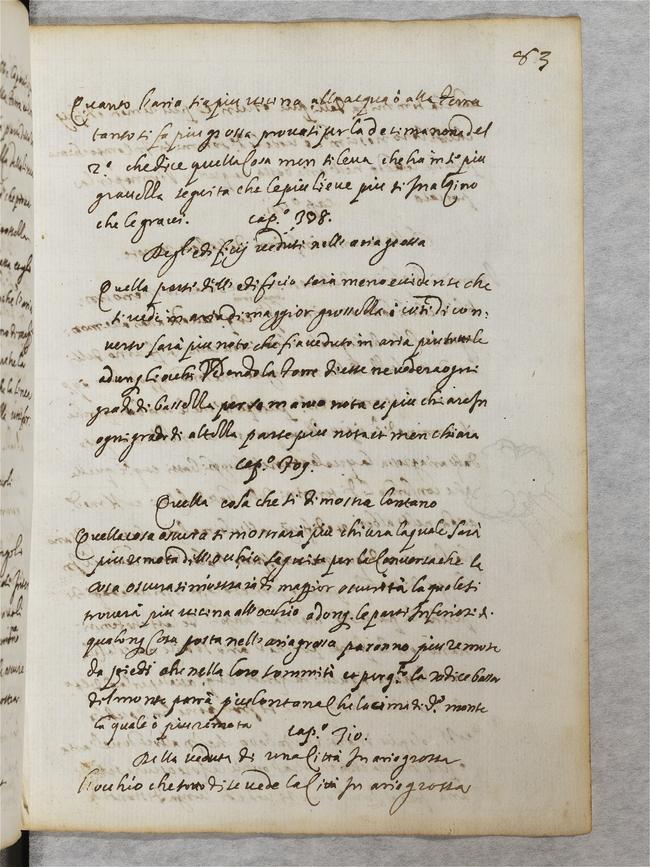 83
Quanto l'aria sia piu vicina alla acqua ò alla terra
tanto si fa piu grossa provasi per la decima nona del
2.º che dice quella cosa men si leva che ha in se piu
gravezza seguita che le piu lieve piu s'inalzino
che le gravi. cap.º 308.
Degli edificij veduti nell'aria grossa
Quella parte dell'edificio sara meno evidente che
si vede in aria di maggior grossezza e così di con:
verso sarà piu noto che sia veduto in aria piu sottile
adunq l'occhio vedendo la torre di esse ne vedera ogni
grado di bassezza parte manco nota et piu chiara In
ogni grado di altezza parte piu nota et men chiara
cap.º 309.
Quella cosa che si dimostra lontano
Quella cosa oscura si mostrarà piu chiara la quale sarà
piu remota dell'occhio seguita per la conversa che la
cosa oscura si mostrarà di maggior oscurità la quale si
trouerà piu vicina all'occhio adonq. le parti Inferiori di
qualonq cosa posta nell'aria grossa parono piu remote
da piedi che nella loro sommità et per q.to la radice bassa
del monte parrà piu lontana che la cima di d.º monte
la quale è piu remota cap.º 310.
Della veduta di una Città In aria grossa
l'occhio che sotto di se vede la Città In aria grossa